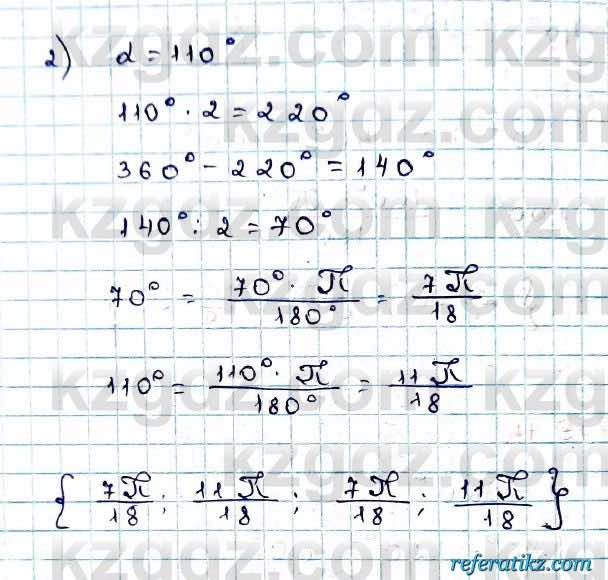 2) α = 110°
110° · 2 = 220°
360° - 220° = 140°
140° : 2 = 70°
70° = 70° · π / 180° = 7π / 18
110° = 110° · π / 180° = 11π / 18
{ 7π / 18 ; 11π / 18 ; 7π / 18 ; 11π / 18 }
kzgdz.com
referatikz.com